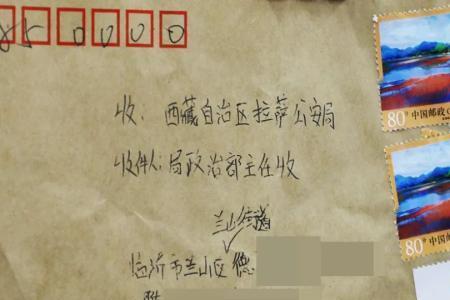 850000
收: 西藏自治区拉萨公安局
收件人: 局政治部主任收
兰山街道
临沂市兰山区德
80分
中国邮政
80分
中国邮